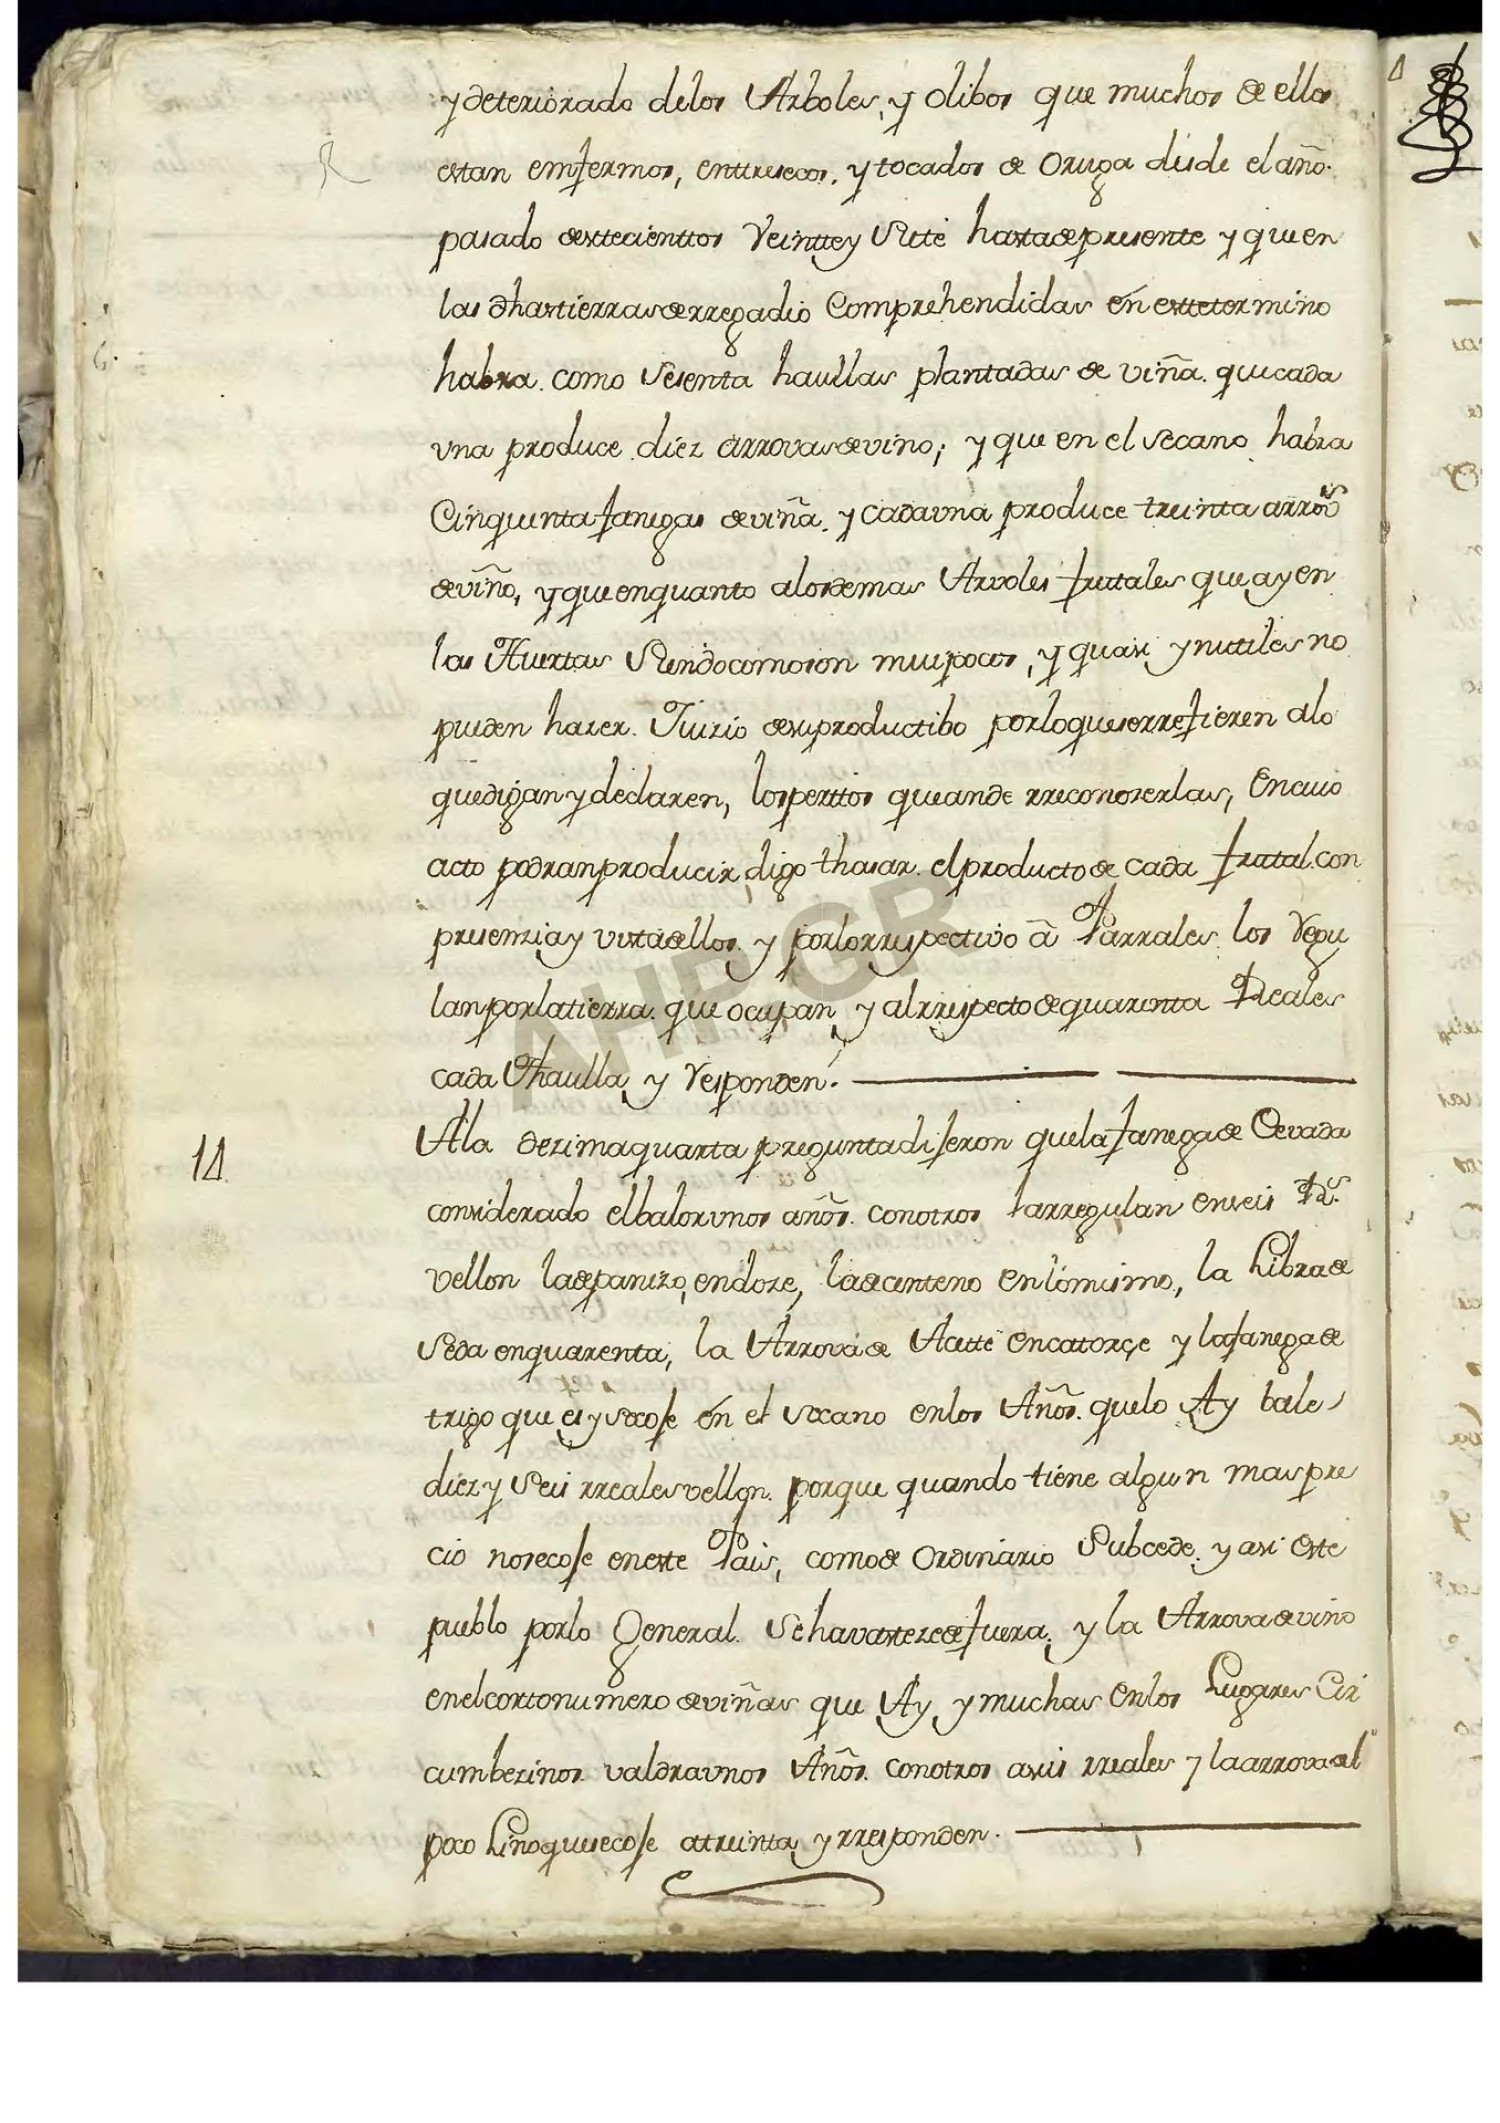 y deteriorado delos Arboles, y olibos que muchos de ellos
estan emfermos, enttresecos, y tocados de oruga desde el año
pasado desettecienttos Veintte y Siete hasta depresente y que en
las dhas tierras de rregadio Comprehendidas én estte termino
habra como Sesenta haullas plantadas de viña que cada
vna produce diez arrovas de vino; y que en el Secano habra
Cinquenta fanegas de viña, y cada vna produce treinta arrovs
de viño, y que en quanto alos demas Arvoles fruttales que ay en
las Huertas Siendo como son mui pocos, y quasi ynutiles no
pueden hazer Juizio de su productibo por lo que se rrefieren alo
que digan y declaren, los perittos que an de rreconoserlas, En cuio
acto podran producir, digo thasar el producto de cada fruttal con
presenzia y vista de llos y por lo rrespectivo â Parrales los Regu
lan por la tierra que ocupan y al rrespecto de quarenta Reales
cada Thaulla y Responden.
14 A la dezima quarta pregunta disseron que la fanega de Cevada
considerado el balor vnos años con otros la rregulan en seis Rs
vellon la de panizo, en doze, la de centeno en lo mismo, la Libra de
Seda en quarenta, la Arrova de Aceite en cattorçe y la fanega de
trigo que es y se cose én el Secano en los Años que lo Ay bale
diez y Seis rreales vellon porque quando tiene algun mas pre
cio no se cose en este Pais, como de ordinario Subcede y asi este
pueblo por lo General Se havasteze de fuera, y la Arrova de vino
en el corto numero de viñas que Ay y muchas en los Lugares Cir
cumbezinos valdra vnos Años con otros a seis rreales y la arrova del
poco Lino que se cose a treinta y rresponden.